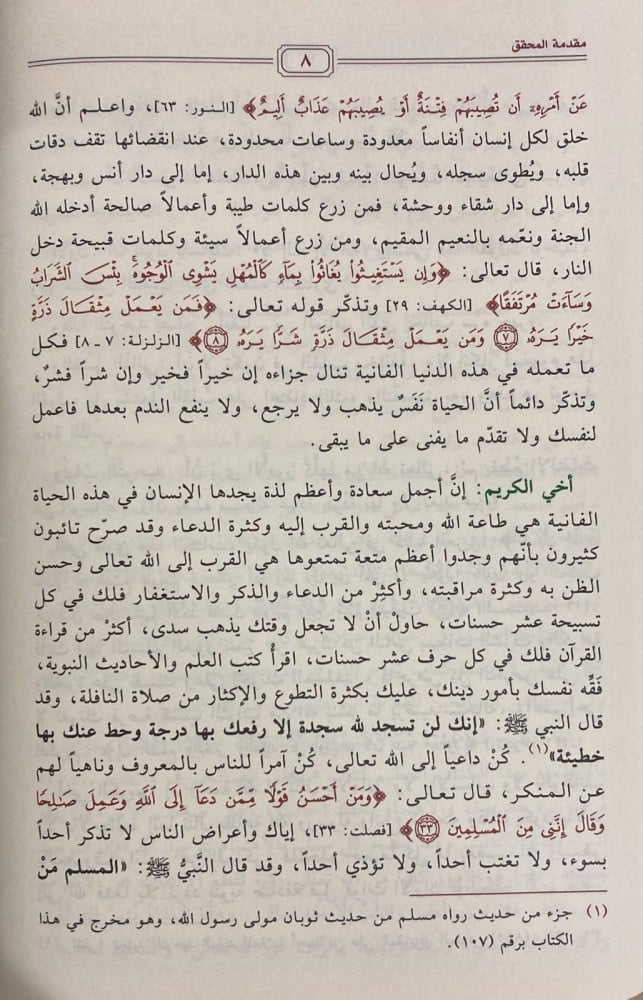 مقدمة المحقق
٨
عَنْ أَمْرِهِۦٓ أَن تُصِيبَهُمْ فِتْنَةٌ أَوْ يُصِيبَهُمْ عَذَابٌ أَلِيمٌ﴾ [النور: ٦٣]، واعلم أنَّ الله
خلق لكل إنسان أنفاساً معدودة وساعات محدودة، عند انقضائها تقف دقات
قلبه، ويُطوى سجله، ويُحال بينه وبين هذه الدار، إما إلى دار أنس وبهجة،
وإما إلى دار شقاء ووحشة، فمن زرع كلمات طيبة وأعمالاً صالحة أدخله الله
الجنة ونعّمه بالنعيم المقيم، ومن زرع أعمالاً سيئة وكلمات قبيحة دخل
النار، قال تعالى: ﴿وَإِن يَسْتَغِيثُوا۟ يُغَاثُوا۟ بِمَآءٍ كَٱلْمُهْلِ يَشْوِى ٱلْوُجُوهَ ۚ بِئْسَ ٱلشَّرَابُ
وَسَآءَتْ مُرْتَفَقًا﴾ [الكهف: ٢٩] وتذكّر قوله تعالى: ﴿فَمَن يَعْمَلْ مِثْقَالَ ذَرَّةٍ
خَيْرًا يَرَهُۥ ۝٧ وَمَن يَعْمَلْ مِثْقَالَ ذَرَّةٍ شَرًّا يَرَهُۥ ۝٨﴾ [الزلزلة: ٧ ـ ٨] فكل
ما تعمله في هذه الدنيا الفانية تنال جزاءه إن خيراً فخير وإن شراً فشرٌ،
وتذكّر دائماً أنَّ الحياة نَفَسٌ يذهب ولا يرجع، ولا ينفع الندم بعدها فاعمل
لنفسك ولا تقدّم ما يفنى على ما يبقى.
أخي الكريم: إنَّ أجمل سعادة وأعظم لذة يجدها الإنسان في هذه الحياة
الفانية هي طاعة الله ومحبته والقرب إليه وكثرة الدعاء وقد صرّح تائبون
كثيرون بأنّهم وجدوا أعظم متعة تمتعوها هي القرب إلى الله تعالى وحسن
الظن به وكثرة مراقبته، وأكثِرْ من الدعاء والذكر والاستغفار فلك في كل
تسبيحة عشر حسنات، حاولْ أنْ لا تجعل وقتك يذهب سدى، أكثرْ من قراءة
القرآن فلك في كل حرف عشر حسنات، اقرأْ كتب العلم والأحاديث النبوية،
فَقِّه نفسك بأمور دينك، عليك بكثرة التطوع والإكثار من صلاة النافلة، وقد
قال النبي ﷺ: «إنك لن تسجد لله سجدة إلا رفعك بها درجة وحط عنك بها
خطيئة»(١). كُنْ داعياً إلى الله تعالى، كُنْ آمراً للناس بالمعروف وناهياً لهم
عن المنكر، قال تعالى: ﴿وَمَنْ أَحْسَنُ قَوْلًا مِّمَّن دَعَآ إِلَى ٱللَّهِ وَعَمِلَ صَـٰلِحًا
وَقَالَ إِنَّنِى مِنَ ٱلْمُسْلِمِينَ ۝٣٣﴾ [فصلت: ٣٣]، إياك وأعراض الناس لا تذكر أحداً
بسوء، ولا تغتب أحداً، ولا تؤذي أحداً، وقد قال النَّبيُّ ﷺ: «المسلم مَنْ
(١) جزء من حديث رواه مسلم من حديث ثوبان مولى رسول الله، وهو مخرج في هذا
الكتاب برقم (١٠٧).